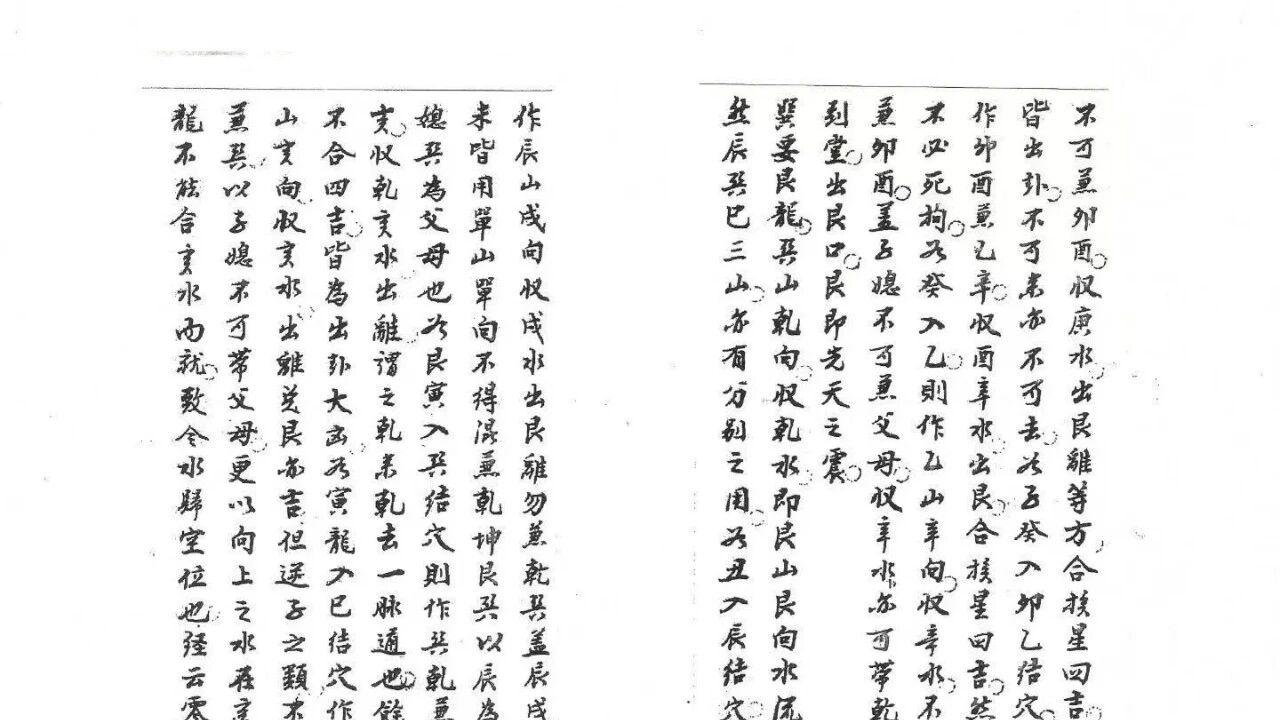 不可兼卯酉收庚水出艮離等方合挨星四吉
皆出卦不可来亦不可去若子癸入卯乙結穴
作卯酉兼乙辛收酉辛水出艮合挨星四吉然
不必死拘若癸入乙則作乙山辛向收辛水不
兼卯酉盖子媳不可兼父母收辛水亦可带乾
到堂出艮口艮即先天之震
巽要艮龍巽山乾向收乾水即艮山艮向水流
然辰巽巳三山亦有分别之用若丑入辰結穴
作辰山戌向收戌水出艮離勿兼乾巽盖辰戌
来皆用單山單向不得混兼乾坤艮巽以辰為
媳巽為父母也若艮寅入巽結穴則作巽乾兼
亥收乾亥水出離謂之乾来乾去一脉通也餘
不合四吉皆為出卦大凶若寅龍入巳結穴作
山亥向收亥水出離兑艮亦吉但逆子之類不
兼巽以子媳不可带父母更以向上之水在亥
龍不能合亥水内就致令水歸空位也経云零